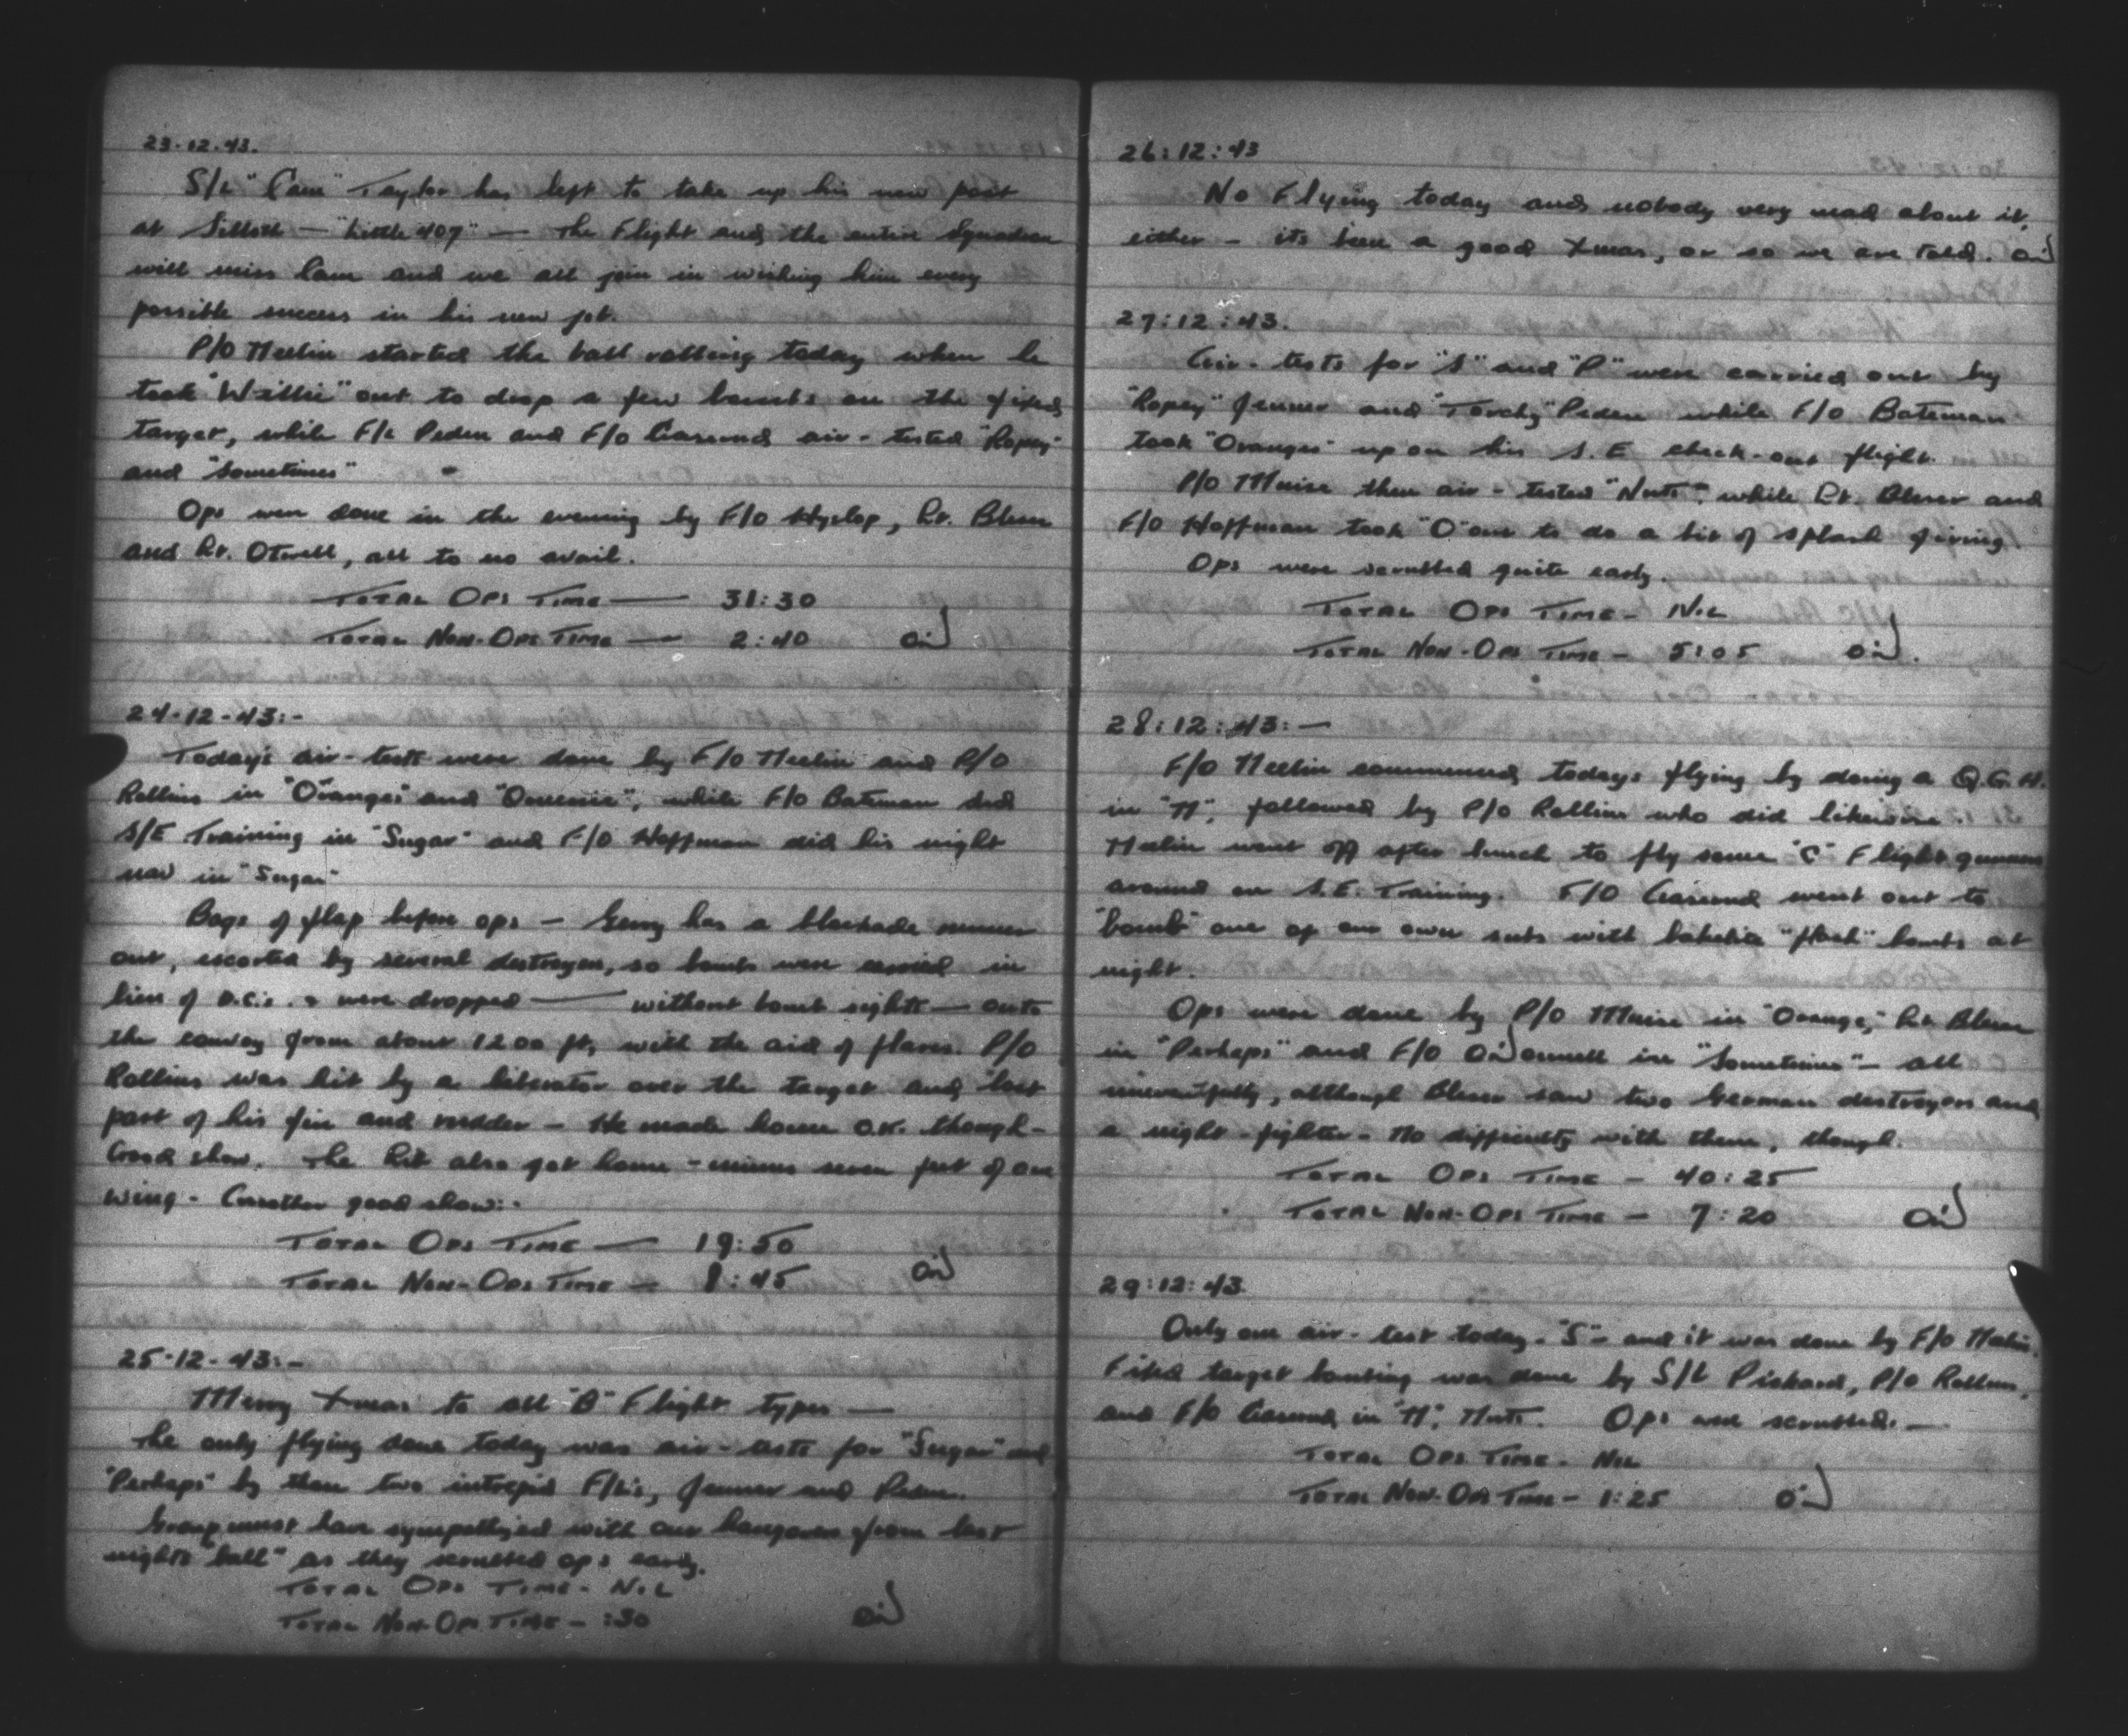 23-12-43.
S/L "Cam" Taylor has left to take up his new post
at Silloth — "Little 407" — The Flight and the entire Squadron
will miss Cam and we all join in wishing him every
possible success in his new job.
P/O Meelin started the ball rolling today when he
took "Willie" out to drop a few bombs on the fixed
target, while F/L Peden and F/O Casend air-tested "Ropey"
and "Sometimes"
Ops were done in the evening by F/O Hyslop, Lt. Bleser
and Lt. Otwell, all to no avail.
TOTAL OPS TIME — 31:30
TOTAL NON-OPS TIME — 2:40
24-12-43:-
Todays air-tests were done by F/O Meelin and P/O
Rollins in "Oranges" and while F/O Bateman did
S/E Training in "Sugar" and F/O Hoffman did his night
nav in "Sugar"
Bags of flap before ops — Gerry has a blockade runner
out, escorted by several destroyers, so bombs were carried in
lieu of D.C.s. & were dropped — without bomb sights — onto
the convoy from about 1200 ft, with the aid of flares. P/O
Rollins was hit by a liberator over the target and lost
part of his fin and rudder — He made home O.K. though —
Good show. The lib also got home - minus seven feet of one
wing - Another good show:-
TOTAL OPS TIME — 19:50
TOTAL NON-OPS TIME — 8:45
25-12-43:-
Merry Xmas to all "B" Flight types —
The only flying done today was air-tests for "Sugar" and
"Perhaps" by them two intrepid F/L's, Jenner and Peden.
Group must have sympathized with our hangovers from last
nights "ball" as they scrubbed ops early.
TOTAL OPS TIME - NIL
TOTAL NON-OPS TIME - :30
26:12:43
No Flying today and nobody very mad about it,
either — its been a good Xmas, or so we are told.
27:12:43.
Air-tests for "S" and "P" were carried out by
"Ropey" Jenner and "Torchy" Peden while F/O Bateman
took "Oranges" up on his S.E check-out flight.
P/O Muise then air-tested "Nuts", while Lt. Bleser and
F/O Hoffman took "O" out to do a bit of splash firing.
Ops were scrubbed quite early.
TOTAL OPS TIME - NIL
TOTAL NON-OPS TIME - 5:05
28:12:43:—
F/O Meelin commenced todays flying by doing a Q.G.H.
in followed by P/O Rollins who did likewise.
Meelin went off after lunch to fly some "C" Flight gunners
around on S.E. Training. F/O Casend went out to
"bomb" one of our own subs with bakelite bombs at
night.
Ops were done by P/O Muise in "Orange," Lt. Bleser
in "Perhaps" and F/O O'Donnell in "Sometimes" — all
uneventfully, although Bleser saw two German destroyers and
a night-fighter - No difficulty with them, though.
TOTAL OPS TIME - 40:25
TOTAL NON-OPS TIME - 7:20
29:12:43.
Only one air-test today - "S" - and it was done by F/O Meelin.
Fixed target bombing was done by S/L Pickard, P/O Rollins,
and F/O Casend in Ops were scrubbed. —
TOTAL OPS TIME - NIL
TOTAL NON-OPS TIME - 1:25